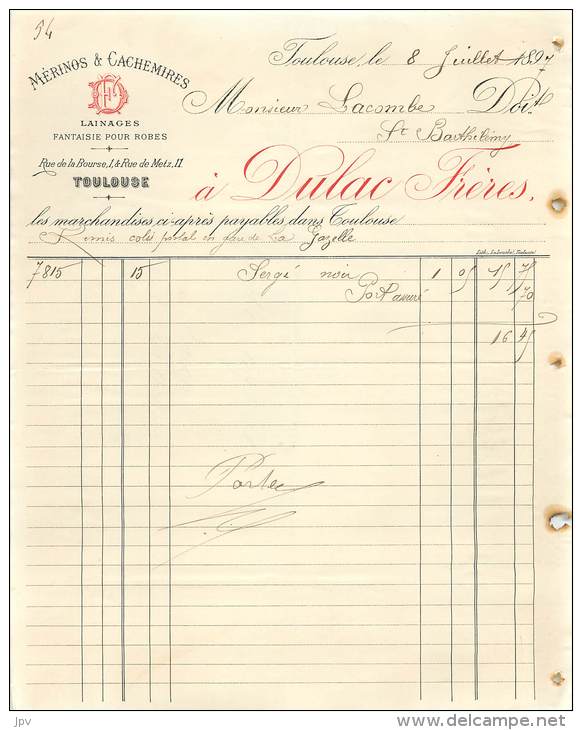 54
MÉRINOS & CACHEMIRES
LAINAGES
FANTAISIE POUR ROBES
Rue de la Bourse, 1, & Rue de Metz, 11
TOULOUSE
Toulouse, le 8 Juillet 1897
Monsieur Lacombe Doit
St Barthélémy
à Dulac Frères,
les marchandises ci-après payables dans Toulouse
Remis colis postal en gare de La Gazelle
7815 15 Serge noir 1 05 15 75
Port assuré 70
16 45
jpv
www.delcampe.net